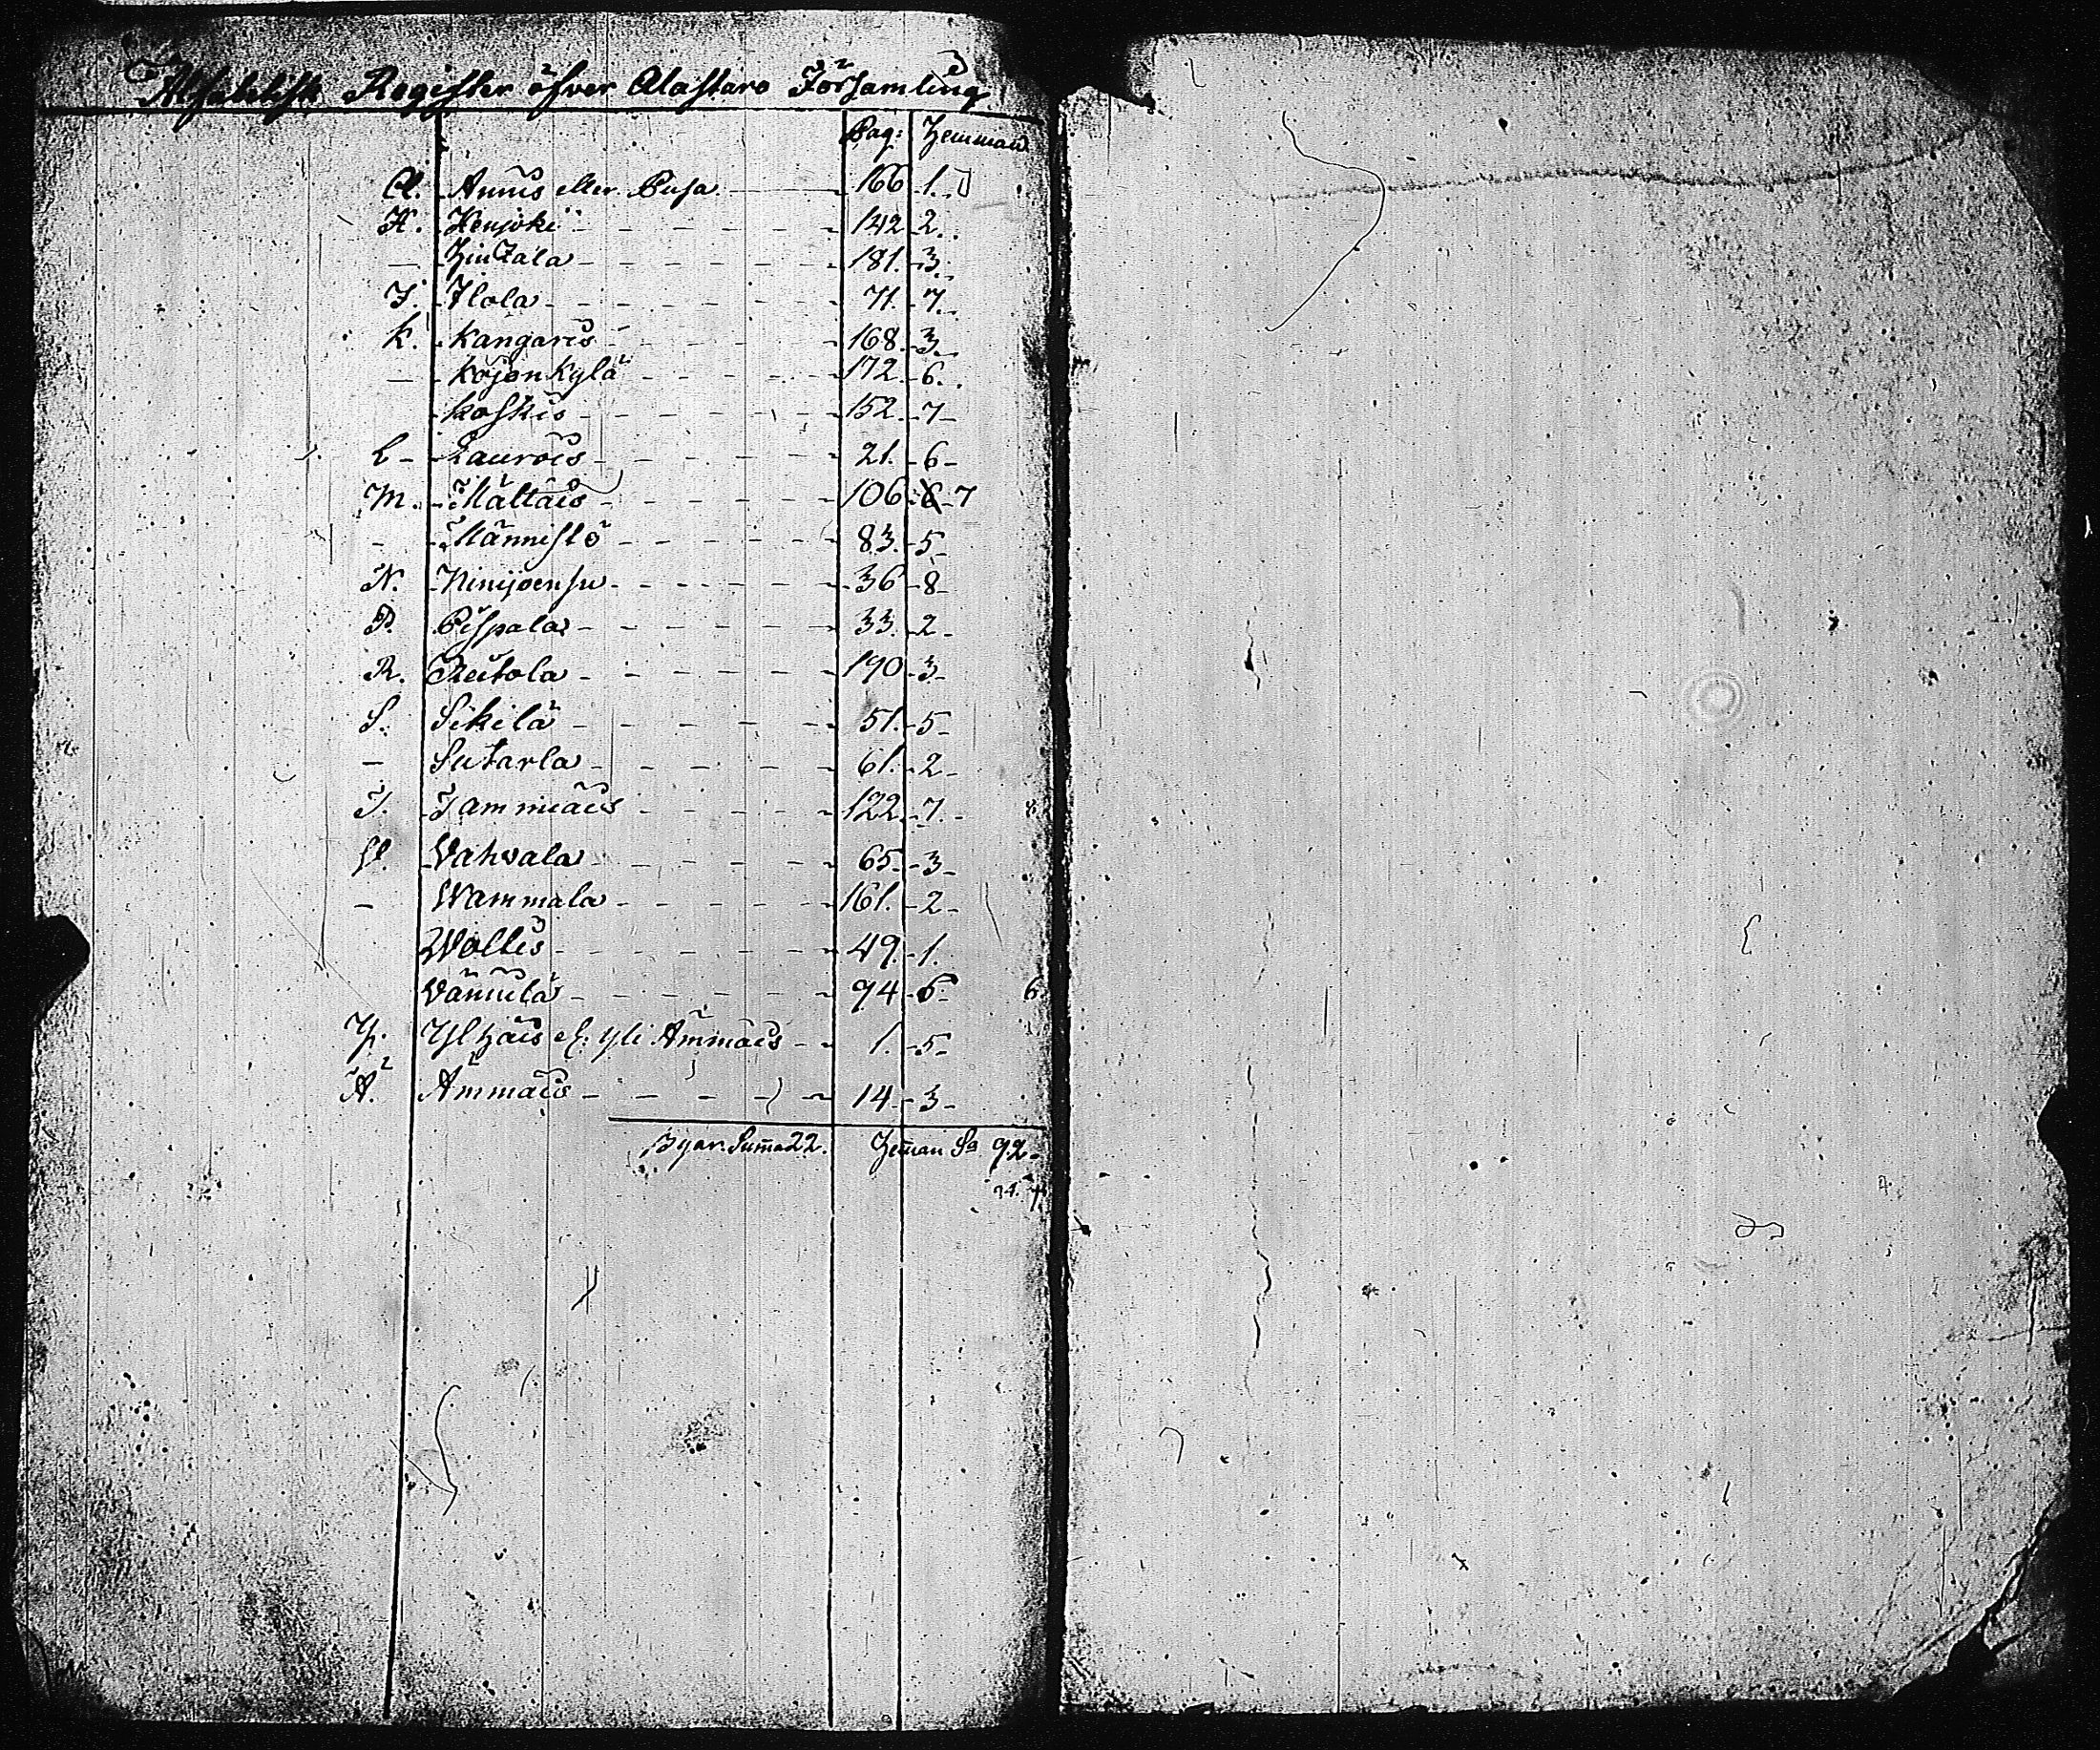 Alfabetisk Register öfver Alastaro Församling
Pag: Hemman
A. Annis eller Pusa 166 1.
H. Henjoki 142 2.
— Hintala 181. 3.
I. Ilola 71. 7.
K. Kangaris 168. 3.
— Köjönkylä 172. 6.
Koskis 152. 7
L Laurois 21. 6
M. Mältäis 106 6 7
- Männistö 83. 5
N. Niinijoensu 36 8
P. Pispala 33. 2
R. Reitola 190 3
S. Sikilä 51. 5
— Sutarla 61. 2
T. Tammiais 122. 7.
V. Vahvala 65. 3
- Wammala 161. 2
Woltis 49. 1.
Vännilä 94 6. 6
Y. Ylhäis el: Yli Ämmäis 1. 5
Ä. Ämmäis 14 3
Byar. Summa 22. Heman Sa 92